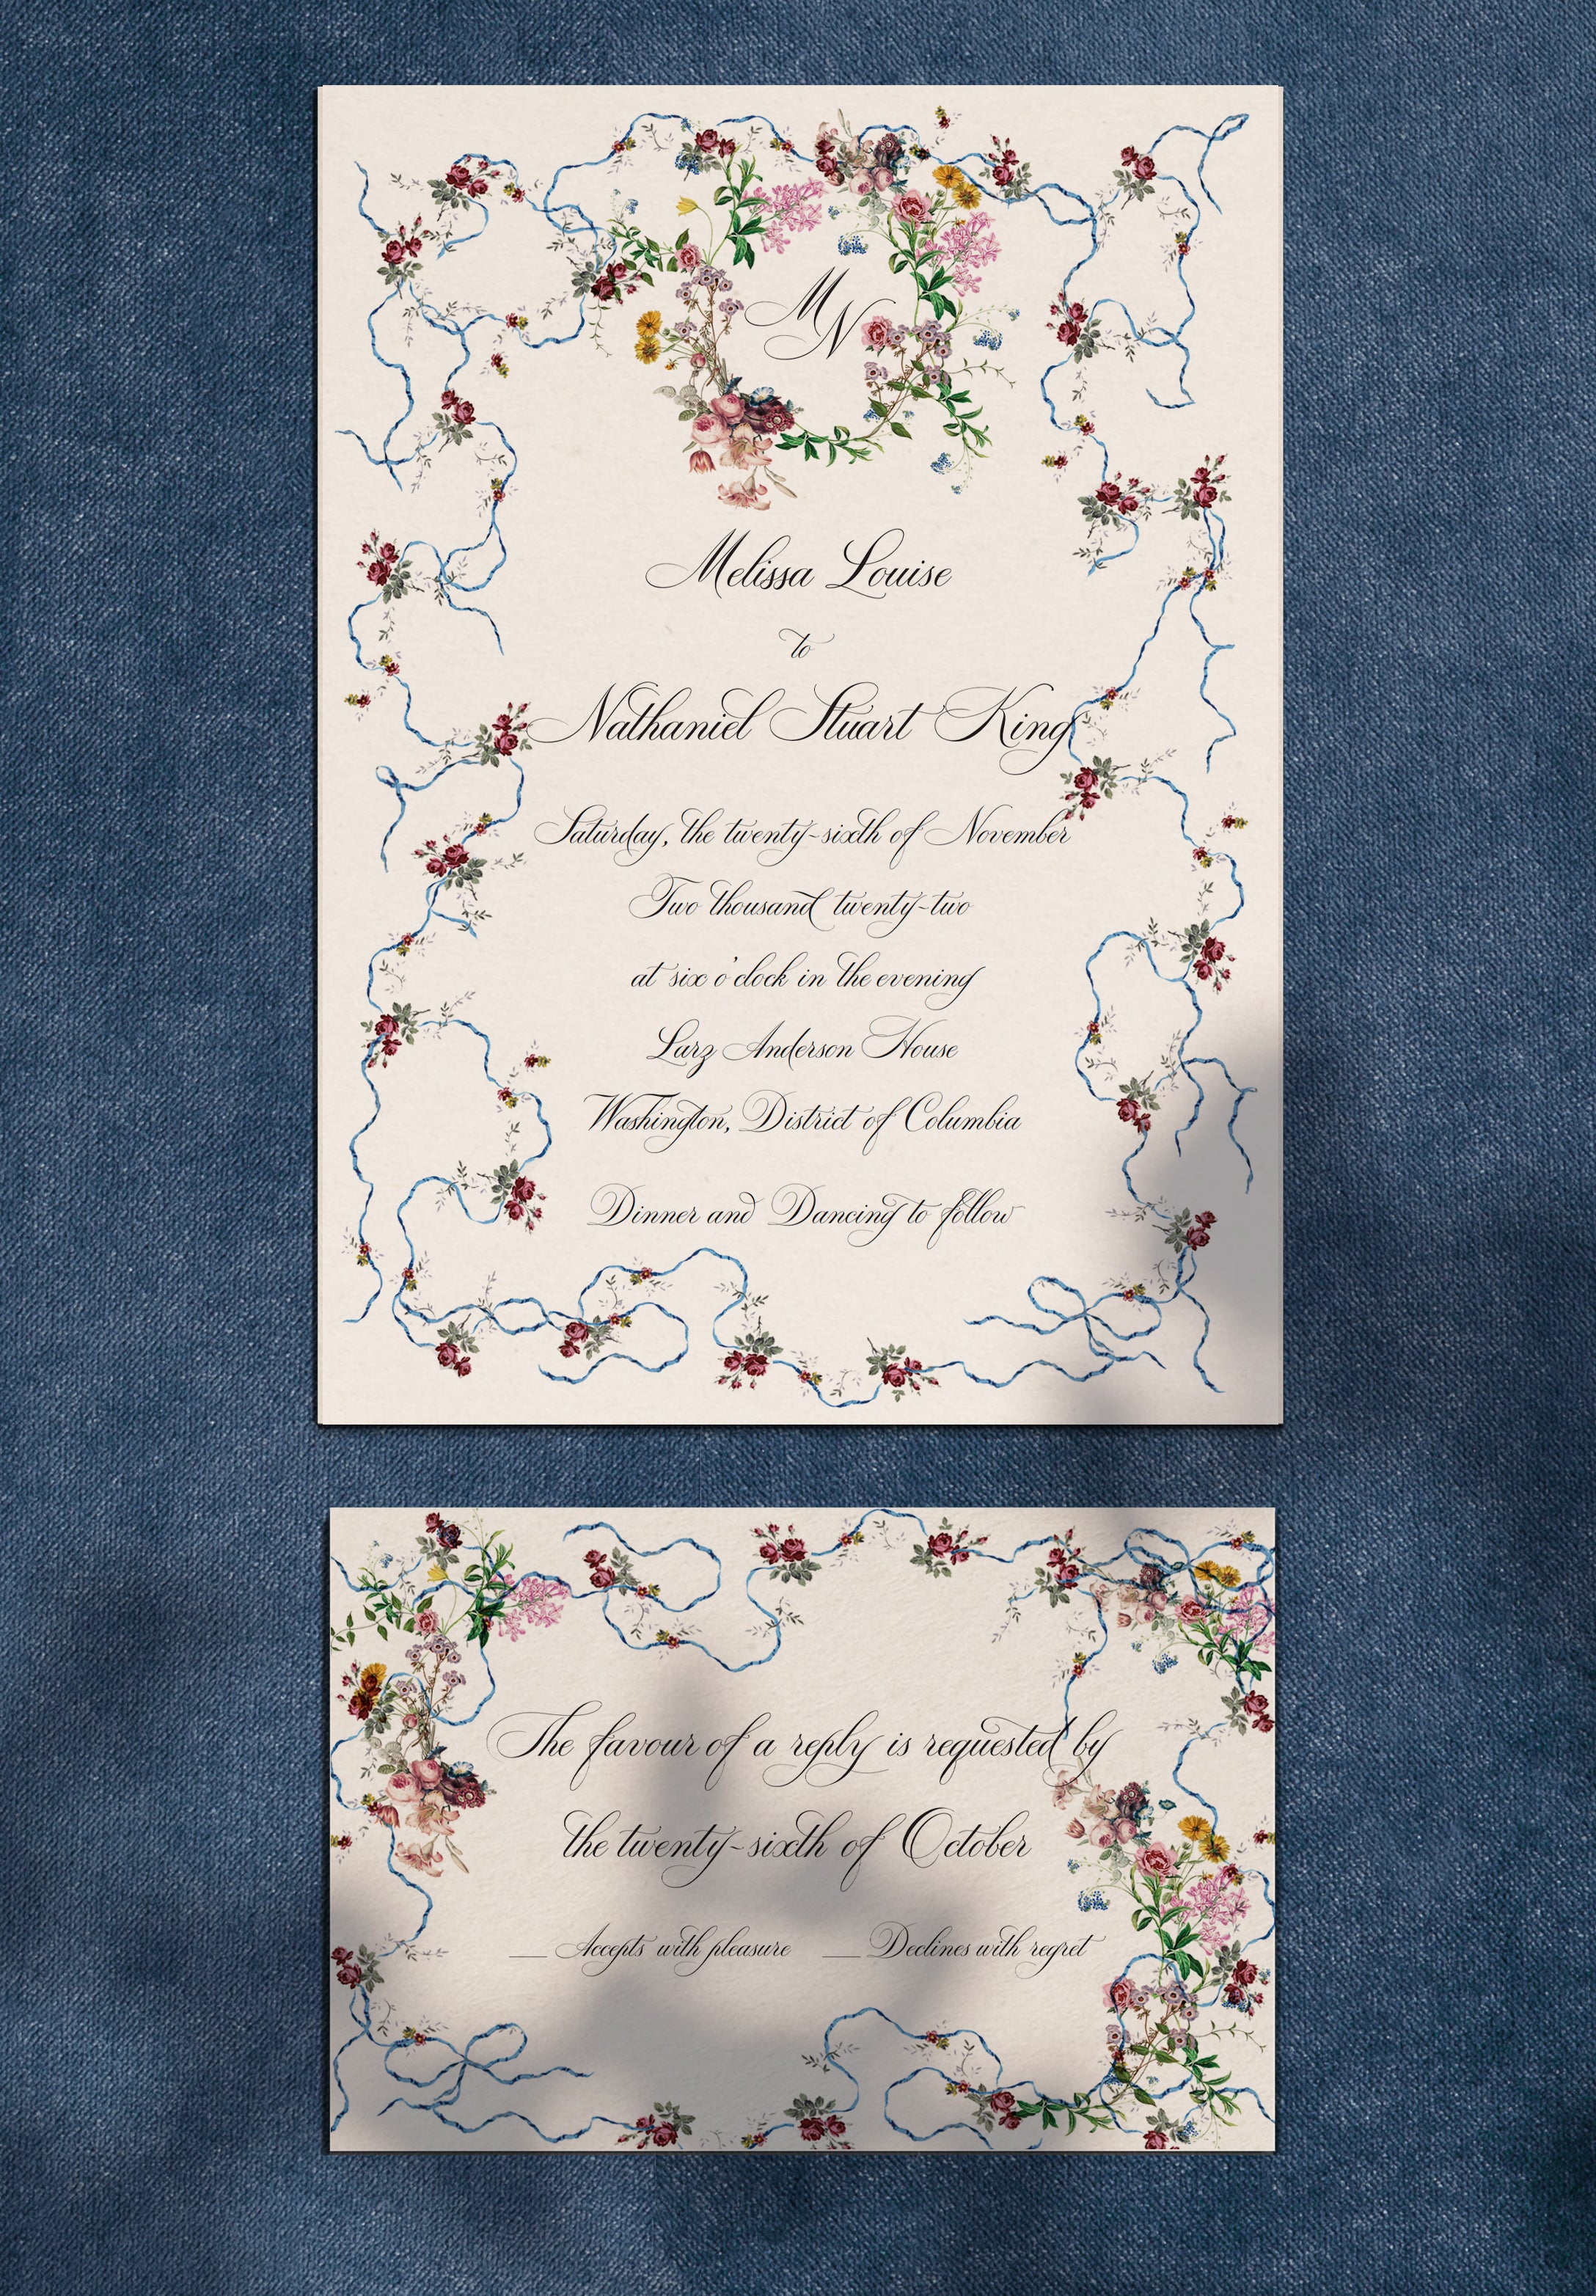 M
N
Melissa Louise
to
Nathaniel Stuart King
Saturday, the twenty-sixth of November
Two thousand twenty-two
at six o'clock in the evening
Larz Anderson House
Washington, District of Columbia
Dinner and Dancing to follow
The favour of a reply is requested by
the twenty-sixth of October
__ Accepts with pleasure __ Declines with regret